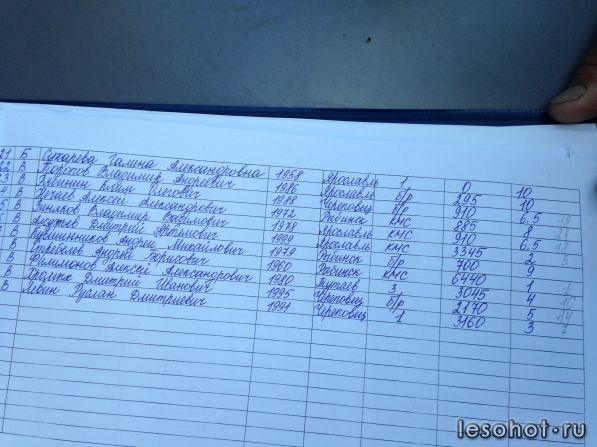 21 Б Сухарева Галина Александровна 1958 Ярославль 1 0 10
22 В Торопов Владимир Андреевич 1986 Ярославль б/р 295 10
3 В Климин Олегович 1988 Череповец б/р 910 6,5
4 В Нечаев Алексей Александрович 1972 Рыбинск кмс 885 8
5 В Владимир 1978 Ярославль кмс 910 6,5
6 В Дмитрий Артёмович 1999 Ярославль кмс 3345 2
В Кувшинников Андрей Михайлович 1979 Рыбинск б/р 700 9
В Андрей Борисович 1960 Рыбинск кмс 6440 1
В Филимонов Алексей Александрович 1980 Тутаев 3 3045 4
В Дмитрий Иванович 1995 Череповец б/р 2170 5
В Левин Руслан Дмитриевич 1991 Череповец 1 3160 3
lesohot.ru